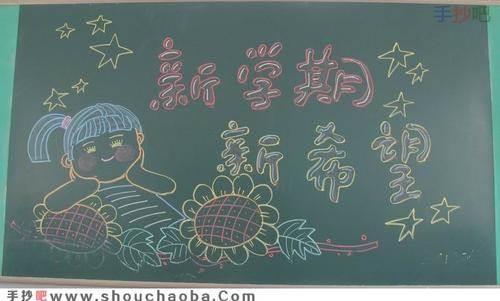 手抄吧
新学期
新希望
手抄吧 www.shouchaoba.com